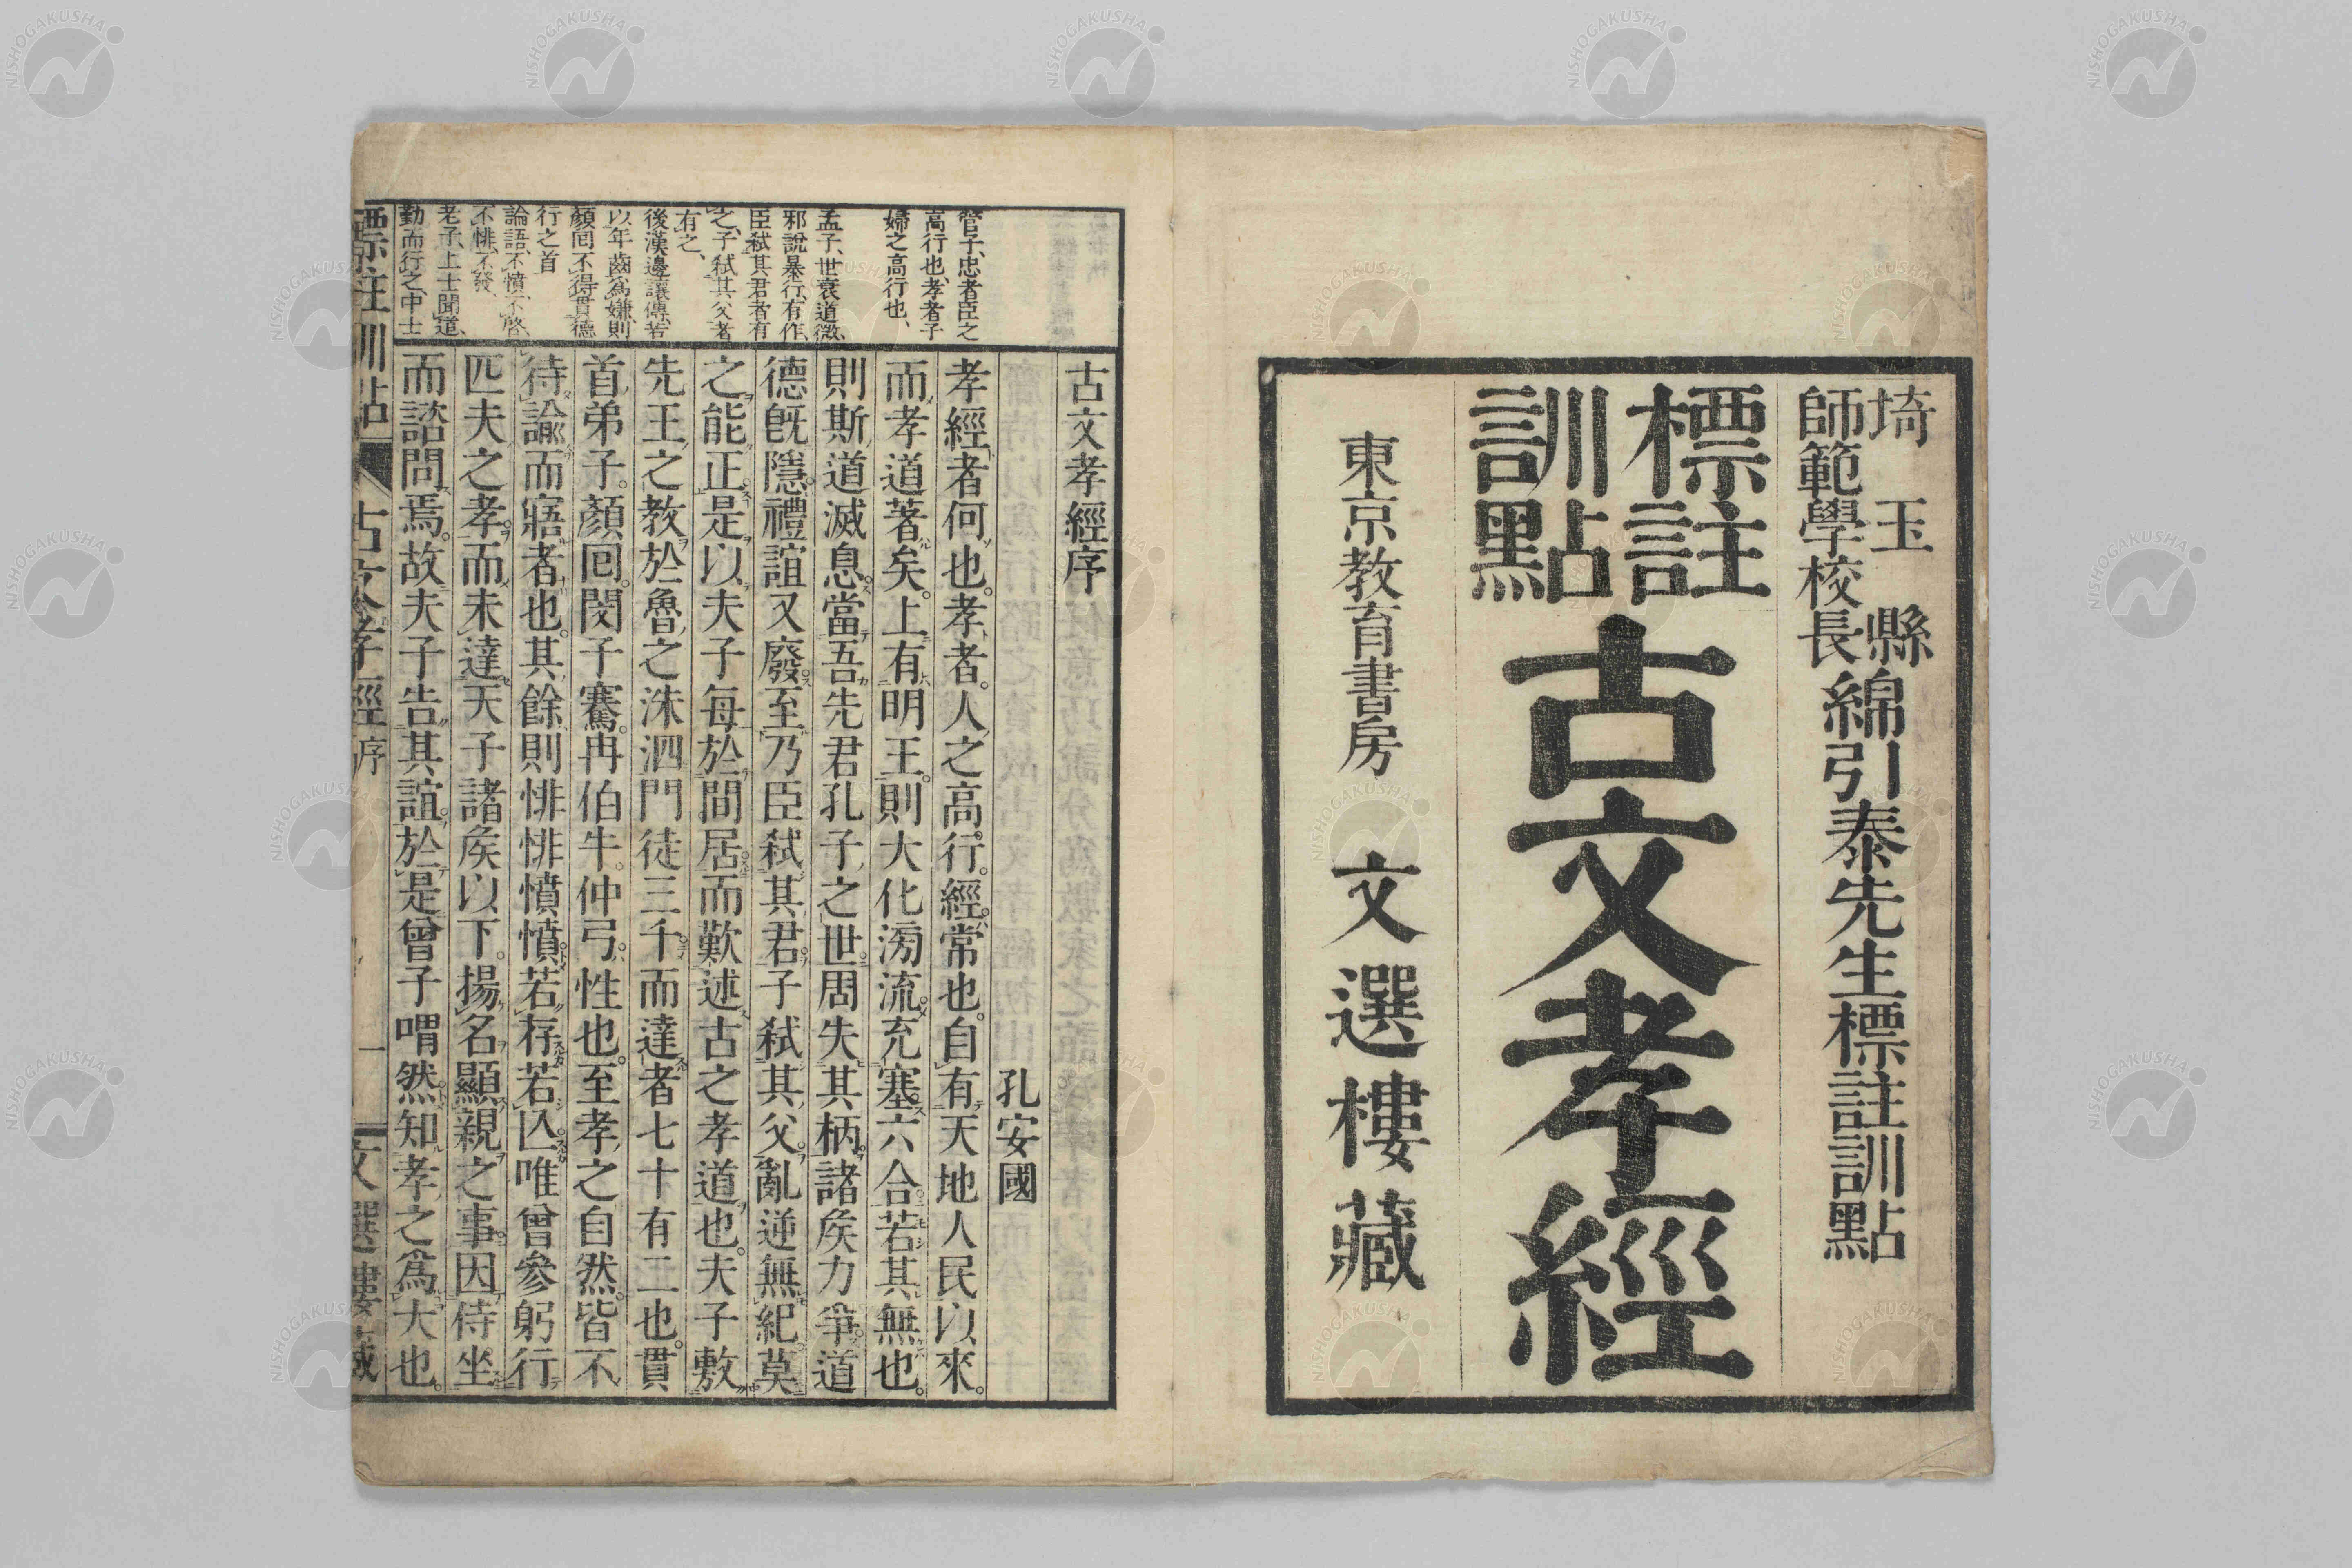 埼玉縣
師範學校長
綿引泰先生標註訓點
標註
訓點
古文孝經
東京教育書房 文選樓藏
古文孝經序
孔安國
孝經者何也。孝者。人之高行。經。常也。自有天地人民以來。
而孝道著矣。上有明王。則大化滂流。充塞六合。若其無也。
則斯道滅息。當吾先君孔子之世。周失其柄。諸矦力爭。道
德旣隱。禮誼又廢。至乃臣弑其君。子弑其父。亂逆無紀。莫
之能正。是以夫子每於間居。而歎述古之孝道也。夫子敷
先王之教於魯之洙泗。門徒三千。而達者七十有二也。貫
首弟子。顏回。閔子騫。冉伯牛。仲弓。性也。至孝之自然。皆不
待諭而寤者也。其餘則悱悱憤憤。若存若亾。唯曾參躬行
匹夫之孝。而未達天子諸矦以下。揚名顯親之事。因侍坐
而諮問焉。故夫子告其誼。於是曾子喟然知孝之爲大也。
管子、忠者臣之
高行也、孝者子
婦之高行也、
孟子、世衰道微、
邪說暴行有作、
臣弑其君者有
之、子弑其父者
有之、
後漢邊讓傳、若
以年齒爲嫌、則
顏回不得貫德
行之首
論語、不憤不啓、
不悱不發、
老子、上士聞道、
勤而行之、中士
標註訓點 古文孝經 序 一 文選樓藏
NISHOGAKUSHA